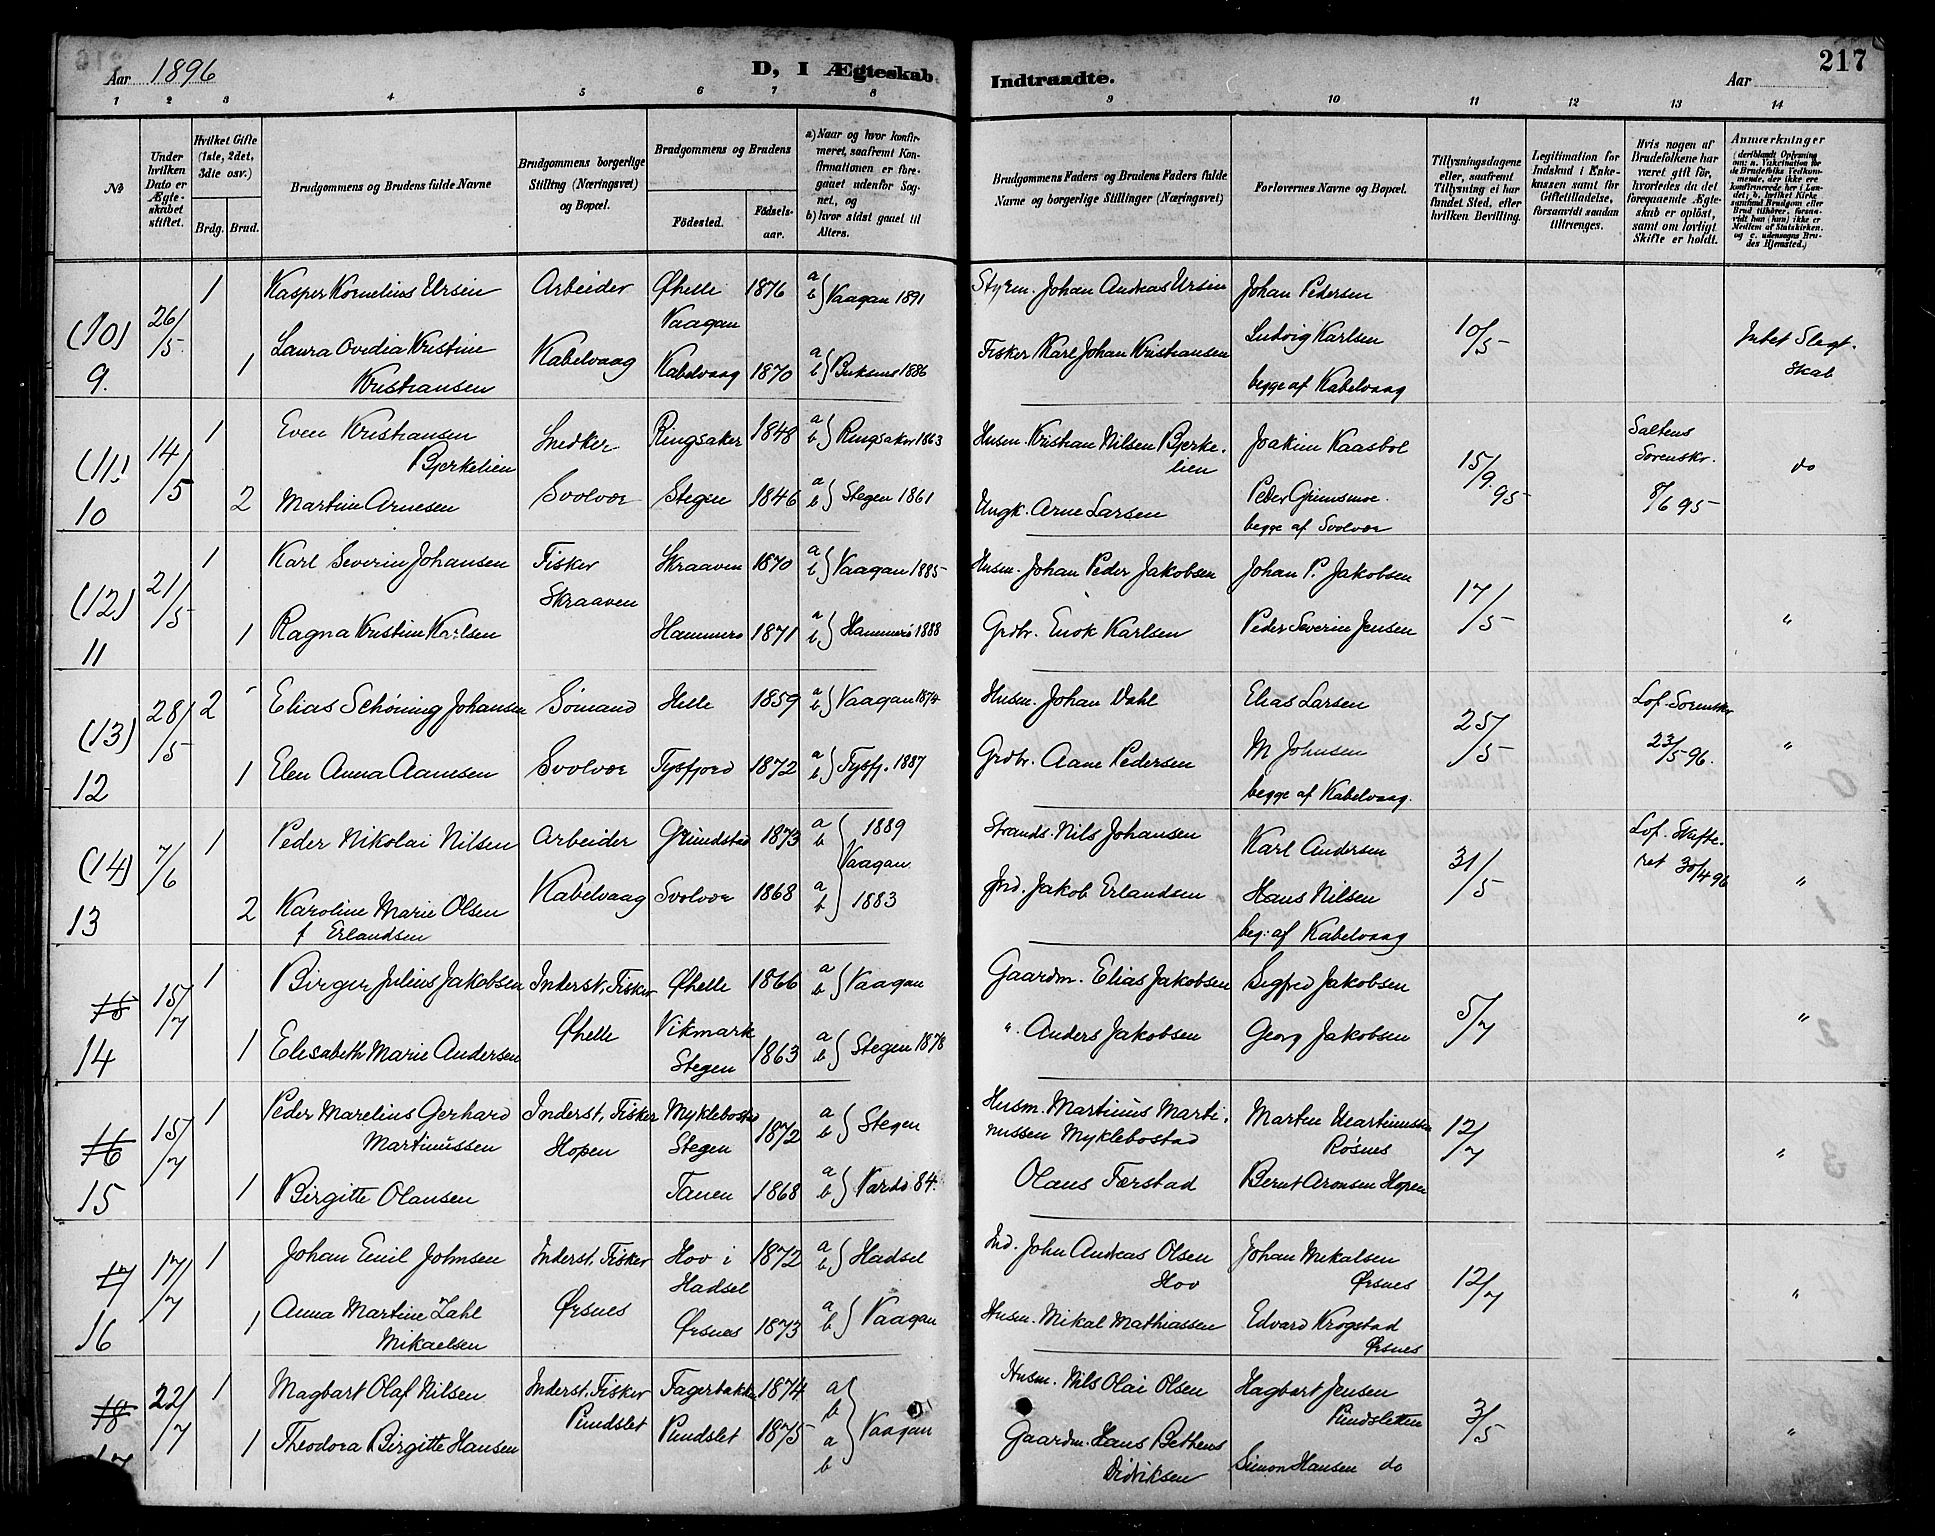 Aar 1896
D, I Ægteskab
Indtraadte.
Aar
217
1 2 3 4 5 6 7 8 9 10 11 12 13 14
No
Under hvilken Dato er Ægteskabet stiftet.
Hvilket Gifte (1ste, 2det, 3die osv.)
Brdg. Brud.
Brudgommens og Brudens fulde Navne
Brudgommens borgerlige Stilling (Næringsvei) og Bopæl.
Brudgommens og Brudens
Fødested. Fødselsaar.
a) Naar og hvor konfirmeret, saafremt Konfirmationen er foregaaet udenfor Sognet, og
b) hvor sidst gaaet til Alters.
Brudgommens Faders og Brudens Faders fulde Navne og borgerlige Stillinger (Næringsvei)
Forlovernes Navne og Bopæl.
Tillysningsdagene eller, saafremt Tillysning ei har fundet Sted, efter hvilken Bevilling.
Legitimation for Indskud i Enkekassen samt for Giftetilladelse, forsaavidt saadan tiltrænges.
Hvis nogen af Brudefolkene har været gift før, hvorledes da det foregaaende Ægteskab er opløst, samt om lovligt Skifte er holdt.
Anmærkninger
(10) 26/5 1 Kasper Kornelius Ursin Arbeider Øhelle Vaagan 1876 a b Vaagan 1891 Styrm. Johan Andreas Ursin Johan Pedersen
9. 1 Laura Ovedia Kristine Kristiansen Kabelvaag Kabelvaag 1870 a b Buksnes 1886 Fisker Karl Johan Kristiansen Ludvig Karlsen begge af Kabelvaag 10/5 Intet Slegtskab
(11) 14/5 1 Even Kristiansen Bjerkelien Snedker Ringsaker 1848 a b Ringsaker 1863 Husm. Kristian Nilsen Bjerkelien Joakim Kaasbol 15/9 95 Saltens Sorenskr. 8/6 95 do
10 2 Martine Arnesen Svolvær Stegen 1846 a b Stegen 1861 Ungk. Arne Larsen Peder Grimsmoe. begge af Svolvær
(12) 21/5 1 Karl Severin Johansen Fisker Skraaven Skraaven 1870 a b Vaagan 1885 Husm. Johan Peder Jakobsen Johan P. Jakobsen 17/5 "
11 1 Ragna Kristine Karlsen Hammerø 1871 a b Hammerø 1888 Grdbr. Enok Karlsen Peder Severin Jensen
(13) 28/5 2 Elias Schøning Johansen Sømand Helle 1859 a b Vaagan 1874 Husm. Johan Dahl Elias Larsen 25/5 Lof. Sorenskr 23/5 96. "
12 1 Elen Anna Aanesen Svolvær Tysfjord 1872 a b Tysfj. 1887 Grdbr. Aane Pedersen M Johnsen begge af Kabelvaag.
(14) 7/6 1 Peder Nikolai Nilsen Arbeider Grundstad 1873 a b 1889 Vaagan Strands. Nils Johansen Karl Andersen 31/5 Lof. Skifteret 30/4 96 "
13 2 Karoline Marie Olsen f Erlandsen Kabelvaag Svolvær 1868 a b 1883 Ind. Jakob Erlandsen Hans Nilsen beg: af Kabelvaag
15 15/7 1 Birger Julius Jakobsen Inderst, Fisker Øhelle 1866 a b Vaagan Gaardm. Elias Jakobsen Sigfred Jakobsen 5/7 "
14 1 Elisabeth Marie Andersen Øhelle Vikmark Stegen 1863 a b Stegen 1878 ". Anders Jakobsen Georg Jakobsen
16 15/7 1 Peder Marelius Gerhard Martinussen Inderst, Fisker Hopen Myklebostad Stegen 1872 a b Stegen Husm. Martinus Martinussen Myklebostad Martin Martinussen Røsnes 12/7 "
15 1 Birgitte Olausen Tanen 1868 a b Vardø 84. Olaus Færstad Bernt Aronsen Hopen
17 17/7 1 Johan Emil Johnsen Inderst, Fisker Hov i Hadsel 1872 a b Hadsel Ind. John Andreas Olsen Hov Johan Mikalsen Ørsnes 12/7 "
16 1 Anna Martine Zahl Mikaelsen Ørsnes Ørsnes 1873 a b Vaagan Husm. Mikal Mathiassen Edvard Krogstad Ørsnes
18 22/7 1 Magbart Olaf Nilsen Inderst, Fisker Pundslet Fagerbakke 1874 a b Vaagan Husm. Nils Olai Olsen Hagbart Jensen Pundsletten 3/5 "
17 1 Theodora Birgitte Hansen Pundslet 1875 a b Gaardm. Hans Bethens Didriksen Simon Hansen do